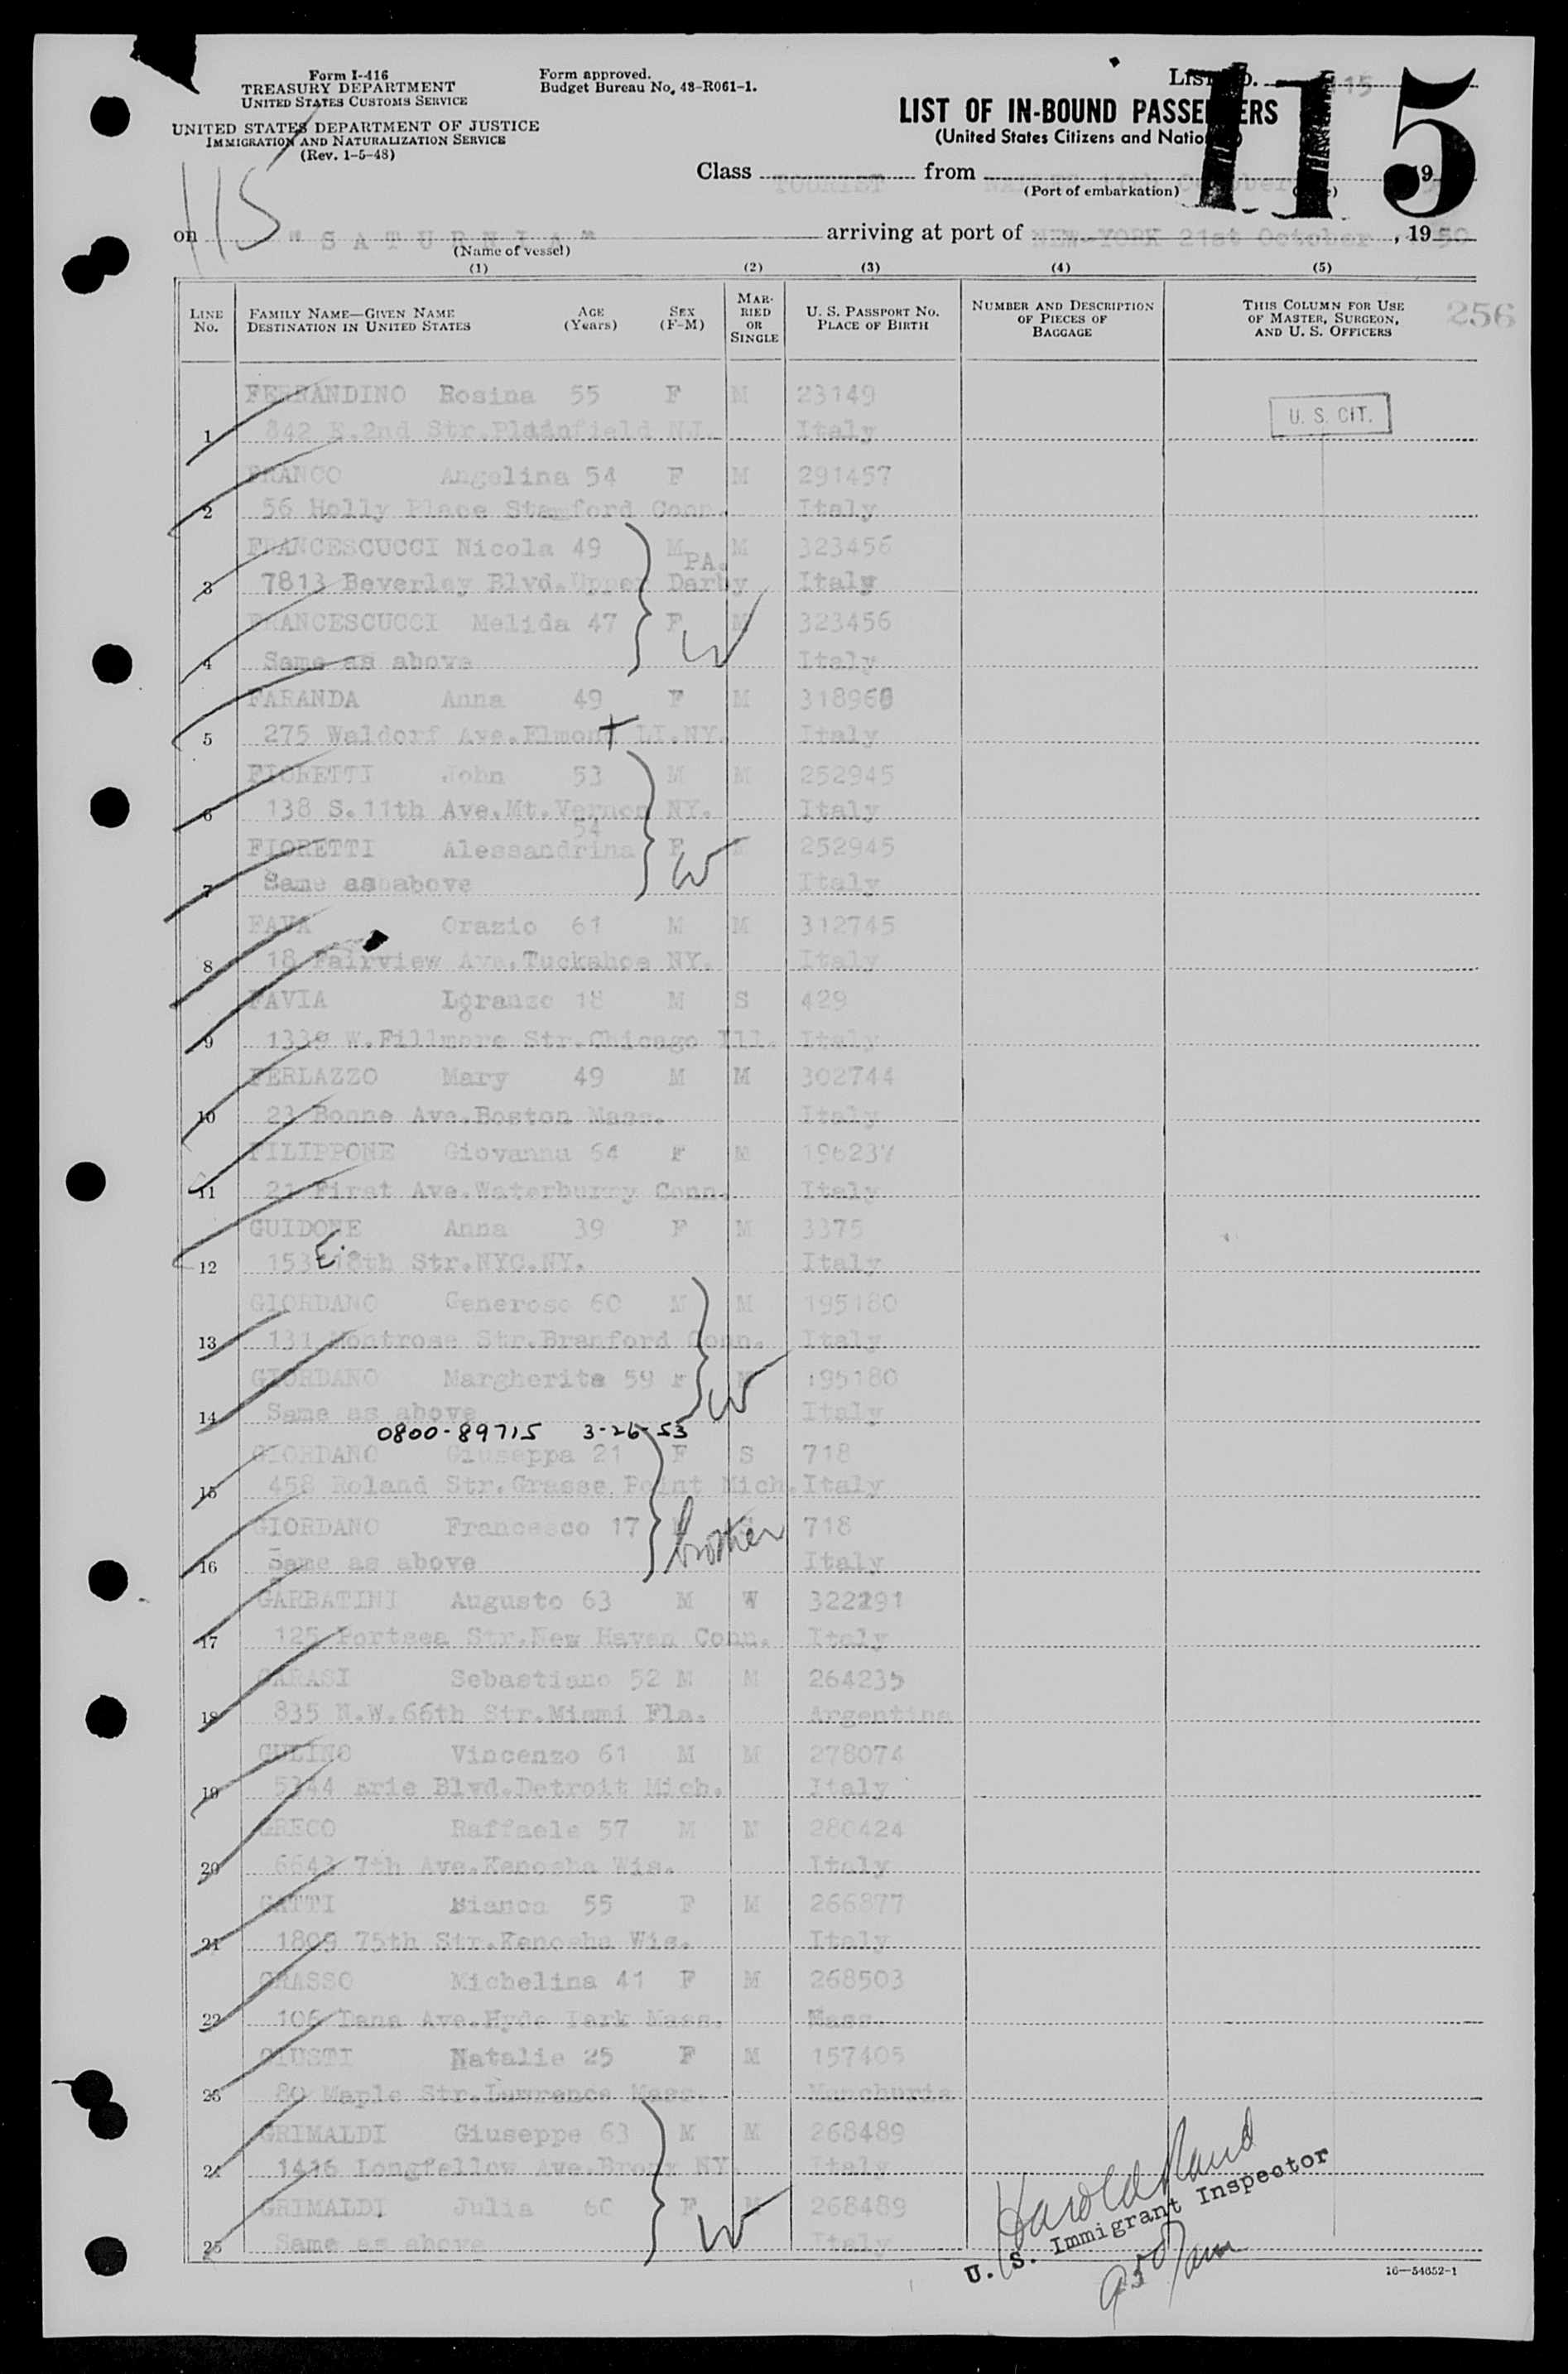 Form I-416
TREASURY DEPARTMENT
UNITED STATES CUSTOMS SERVICE
UNITED STATES DEPARTMENT OF JUSTICE
IMMIGRATION AND NATURALIZATION SERVICE
(Rev. 1-5-48)
Form approved.
Budget Bureau No. 48-R061-1.
List No. 115
115
LIST OF IN-BOUND PASSENGERS
(United States Citizens and Nationals)
115
Class TOURIST from NAPLES 11th October
(Port of embarkation)
on "SATURNIA" arriving at port of NEW-YORK 21st October, 1950
(Name of vessel)
(1) (2) (3) (4) (5)
LINE No.
FAMILY NAME—GIVEN NAME
DESTINATION IN UNITED STATES
AGE (Years)
SEX (F-M)
MARRIED OR SINGLE
U. S. PASSPORT NO.
PLACE OF BIRTH
NUMBER AND DESCRIPTION OF PIECES OF BAGGAGE
THIS COLUMN FOR USE OF MASTER, SURGEON, AND U. S. OFFICERS
256
FERRANDINO Rosina 55 F M 23149
1 842 E.2nd Str.Plainfield NJ. Italy
U. S. CIT.
FRANCO Angelina 54 F M 291457
2 56 Holly Place Stamford Conn. Italy
FRANCESCUCCI Nicola 49 M M 323456
PA.
3 7813 Beverley Blvd.Upper Darby Italy
FRANCESCUCCI Melida 47 F M 323456
4 Same as above Italy
W
FARANDA Anna 49 F M 318968
5 275 Waldorf Ave.Elmont LI.NY. Italy
FIORETTI John 53 M M 252945
6 138 S.11th Ave.Mt.Vernon NY. Italy
54
FIORETTI Alessandrina F 252945
7 Same asbabove Italy
W
FAVA Orazio 61 M M 312745
8 18 Fairview Ave.Tuckahoe NY. Italy
FAVIA Loranzo 18 M S 429
9 1339 W.Fillmore Str.Chicago Ill. Italy
FERLAZZO Mary 49 M M 302744
10 23 Boone Ave.Boston Mass. Italy
FILIPPONE Giovanna 64 F M 196237
11 21 First Ave.Waterburry Conn. Italy
GUIDONE Anna 39 F M 3375
12 153 E. 18th Str.NYC.NY. Italy
GIORDANO Generoso 60 M M 195180
13 131 Montrose Str.Branford Conn. Italy
GIORDANO Margherita 59 F M 195180
14 Same as above Italy
W
0800-89715 3-26-53
GIORDANO Giuseppa 21 F S 718
15 458 Roland Str.Grasse Point Mich. Italy
GIORDANO Francesco 17 718
16 Same as above Italy
brother
GARBATINI Augusto 63 M W 322291
17 125 Portsea Str.New Haven Conn. Italy
GARASI Sebastiano 52 M M 264235
18 835 N.W.66th Str.Miami Fla. Argentina
GULINO Vincenzo 61 M M 278074
19 5344 Arie Blvd.Detroit Mich. Italy
GRECO Raffaele 57 M M 280424
20 6643 7th Ave.Kenosha Wis. Italy
GATTI Bianca 55 F M 266877
21 1809 75th Str.Kenosha Wis. Italy
GRASSO Michelina 41 F M 268503
22 106 Dana Ave.Hyde Park Mass. Mass.
GIUSTI Natalie 25 F M 157405
23 80 Maple Str.Lawrence Mass. Manchuria
GRIMALDI Giuseppe 63 M M 268489
24 1416 Longfellow Ave.Bronx NY. Italy
GRIMALDI Julia 60 F M 268489
25 Same as above Italy
W
Harold Rand
U. S. Immigrant Inspector
950 am
16—54652-1